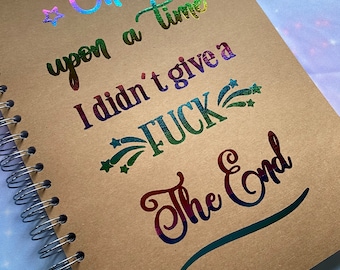 upon a time
I didn't give a
FUCK
The End